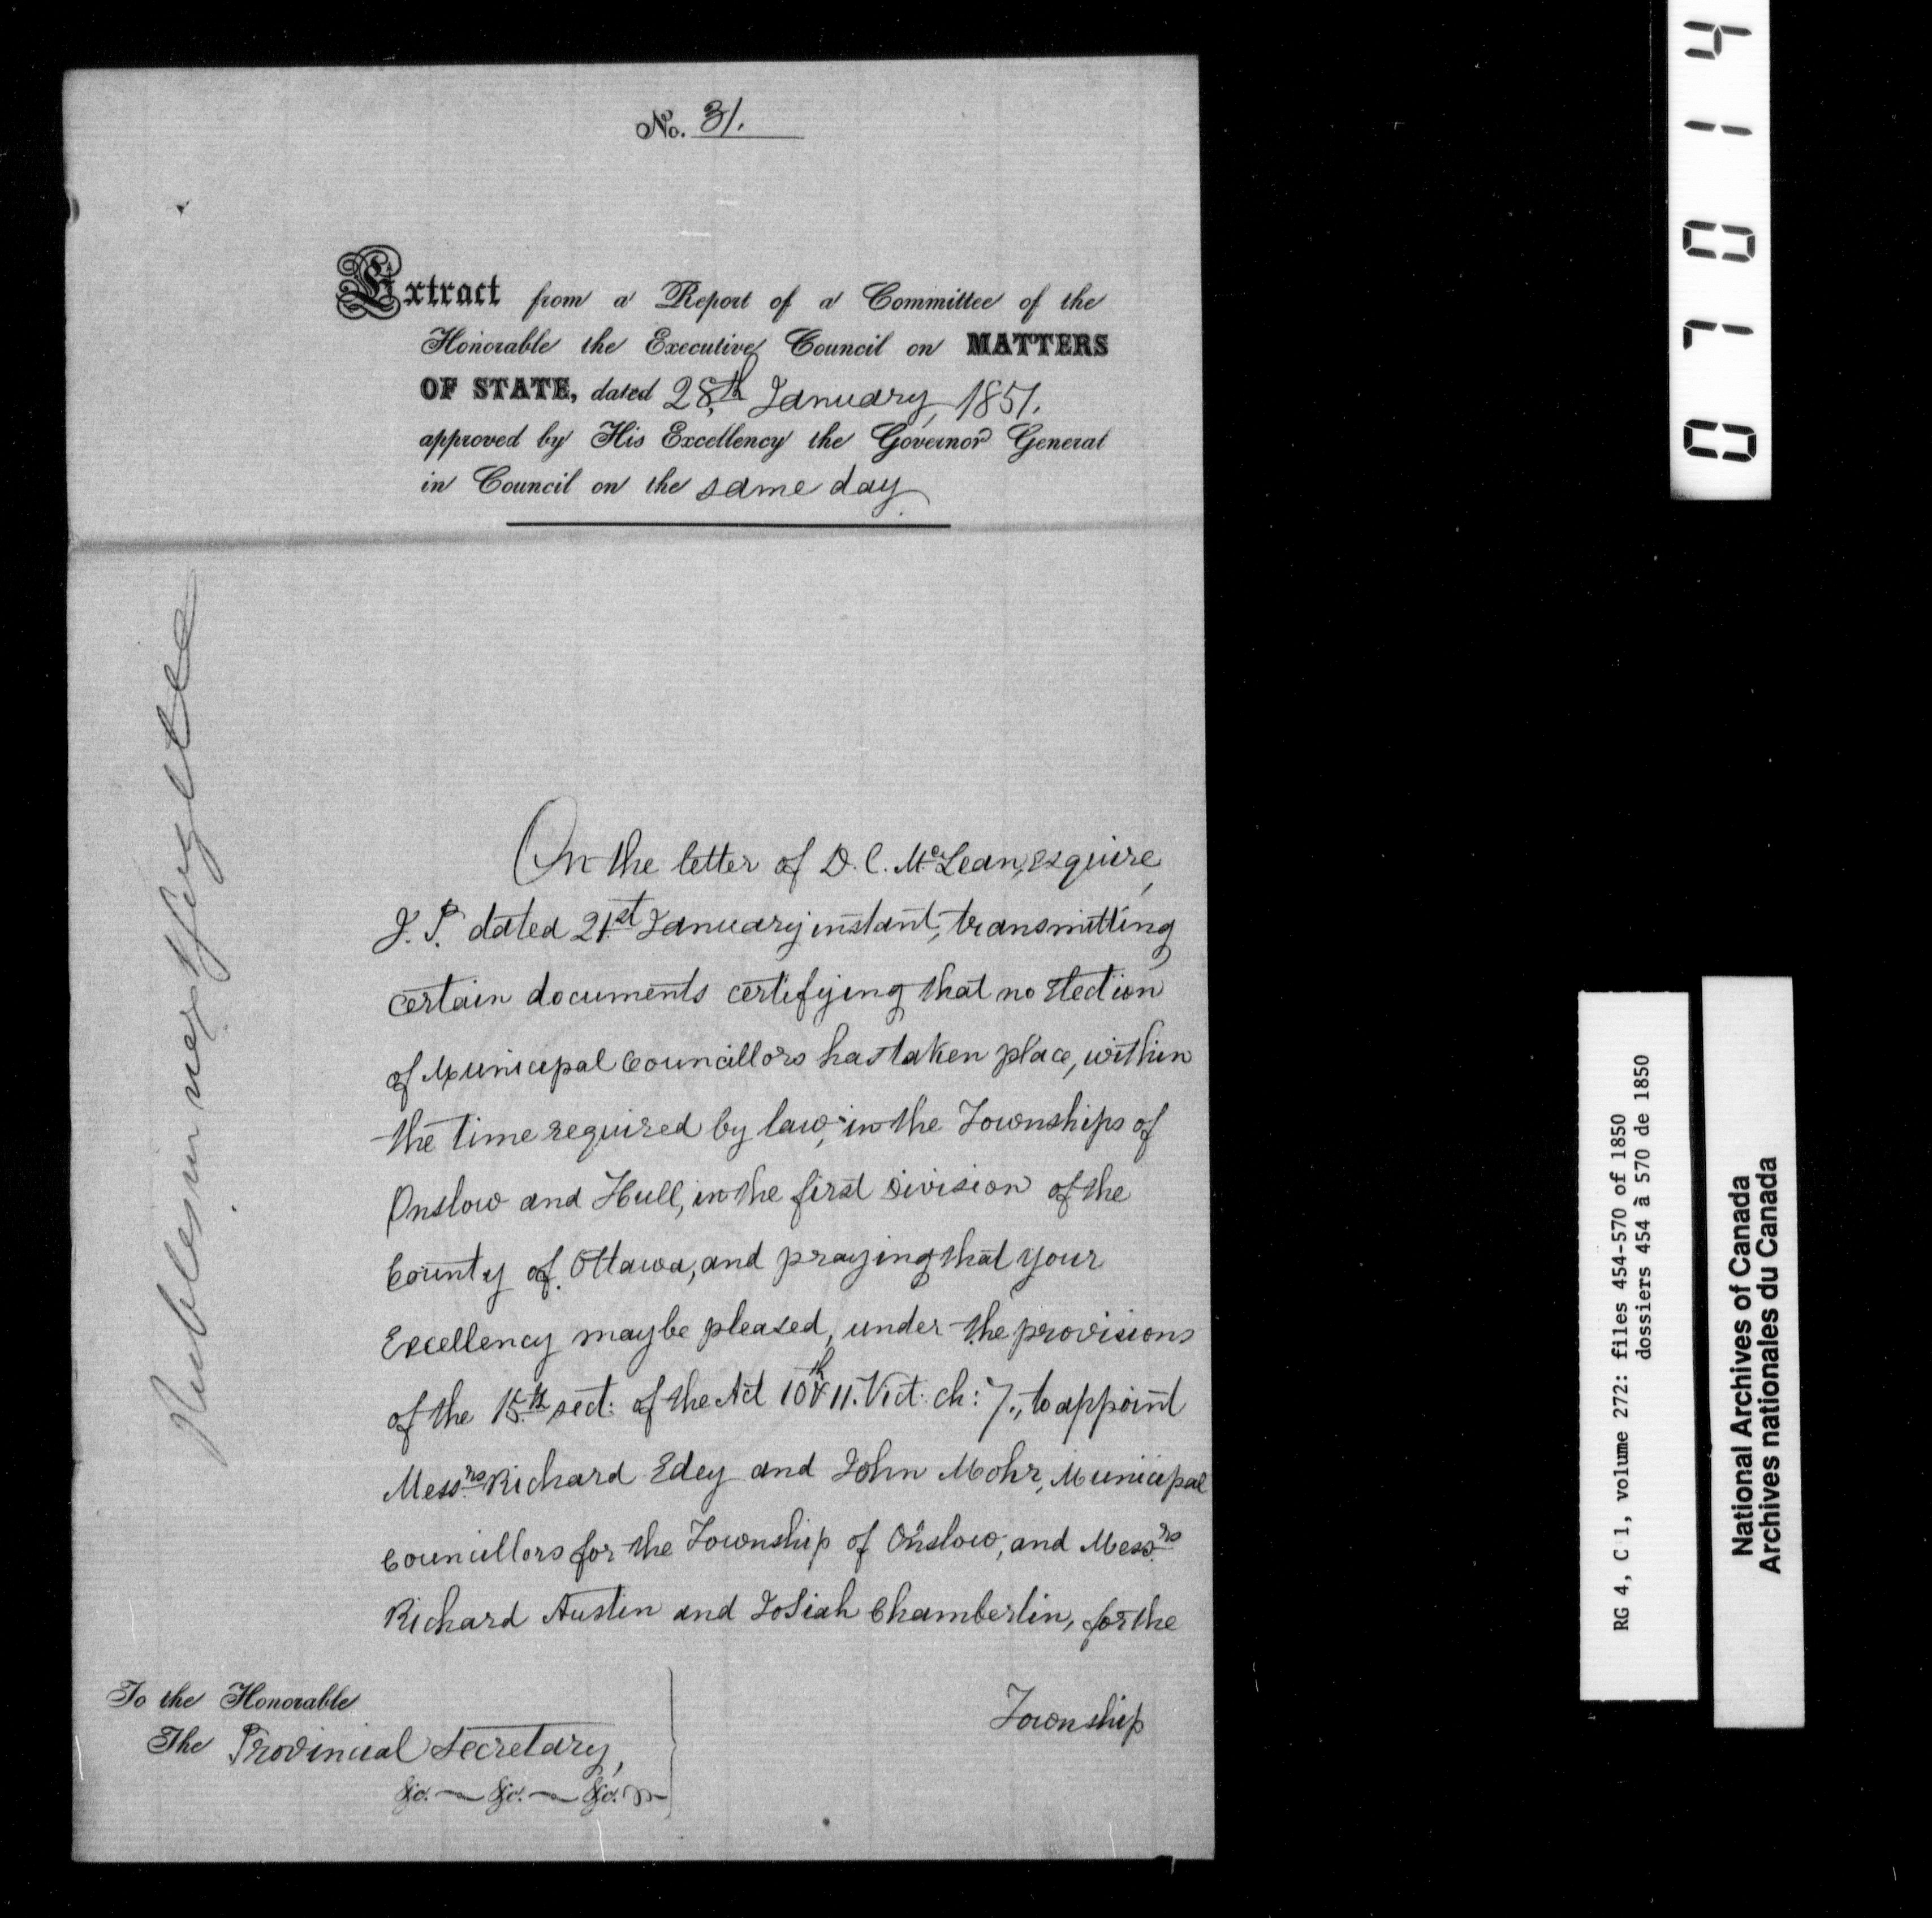 No. 31.
Extract from a Report of a Committee of the
Honorable the Executive Council on MATTERS
OF STATE, dated 28th January, 1851.
approved by His Excellency the Governor General
in Council on the same day.
On the letter of D. C. McLean, Esquire,
J. P. dated 21st January instant, transmitting
certain documents certifying that no Election
of Municipal Councillors has taken place, within
the time required by law, in the Townships of
Onslow and Hull, in the first division of the
County of Ottawa, and praying that your
Excellency may be pleased, under the provisions
of the 15th sect: of the Act 10th & 11. Vict: ch: 7., to appoint
Messrs Richard Edey and John Mohr, Municipal
Councillors for the Township of Onslow, and Messrs
Richard Austin and Josiah Chamberlin, for the
Township
To the Honorable
The Provincial Secretary,
&c. &c. &c.
07014
RG 4, C 1, volume 272: files 454-570 of 1850
dossiers 454 à 570 de 1850
National Archives of Canada
Archives nationales du Canada